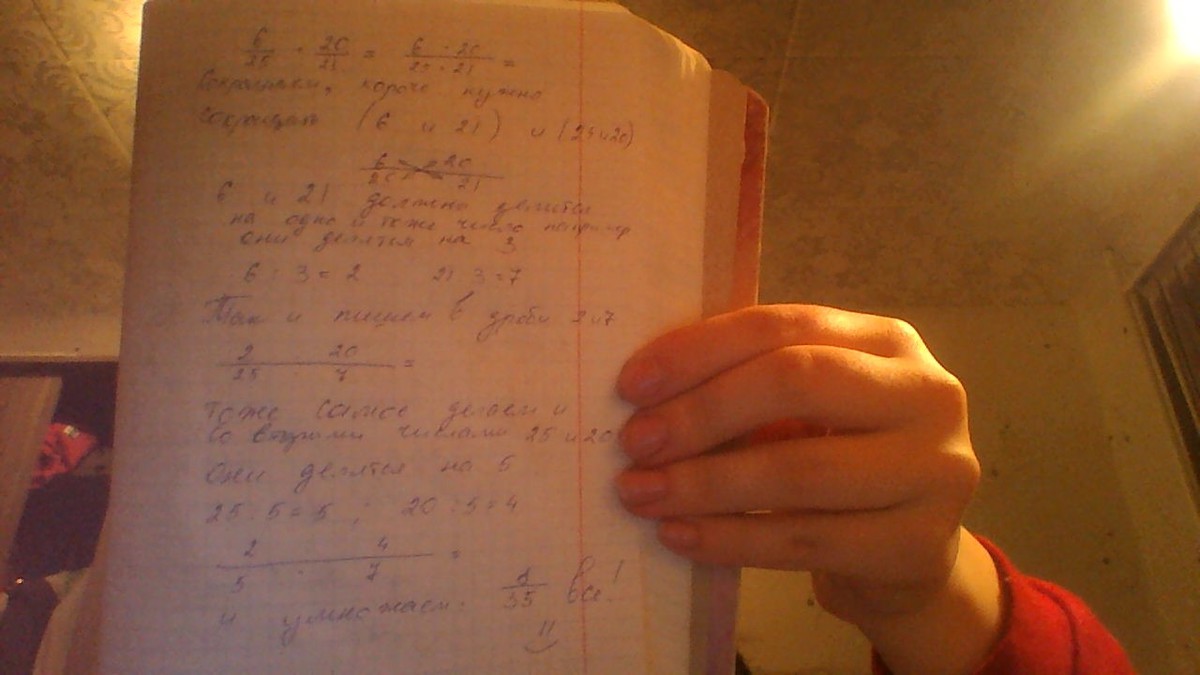 6/25 · 20/21 = 6 · 20/25 · 21 =
Сокращаем, короче нужно
сокращать (6 и 21) и (25 и 20)
6 20/25 21
6 и 21 должно делится
на одно и тоже число например
они делятся на 3
6 : 3 = 2 21 3 = 7
Так и пишем в дроби 2 и 7
2 · 20/25 · 7 =
тоже самое делаем и
со вторыми числами 25 и 20
Они делятся на 5
25 : 5 = 5 ; 20 : 5 = 4
2 4/5 · 7 =
и умножаем: /35 все!